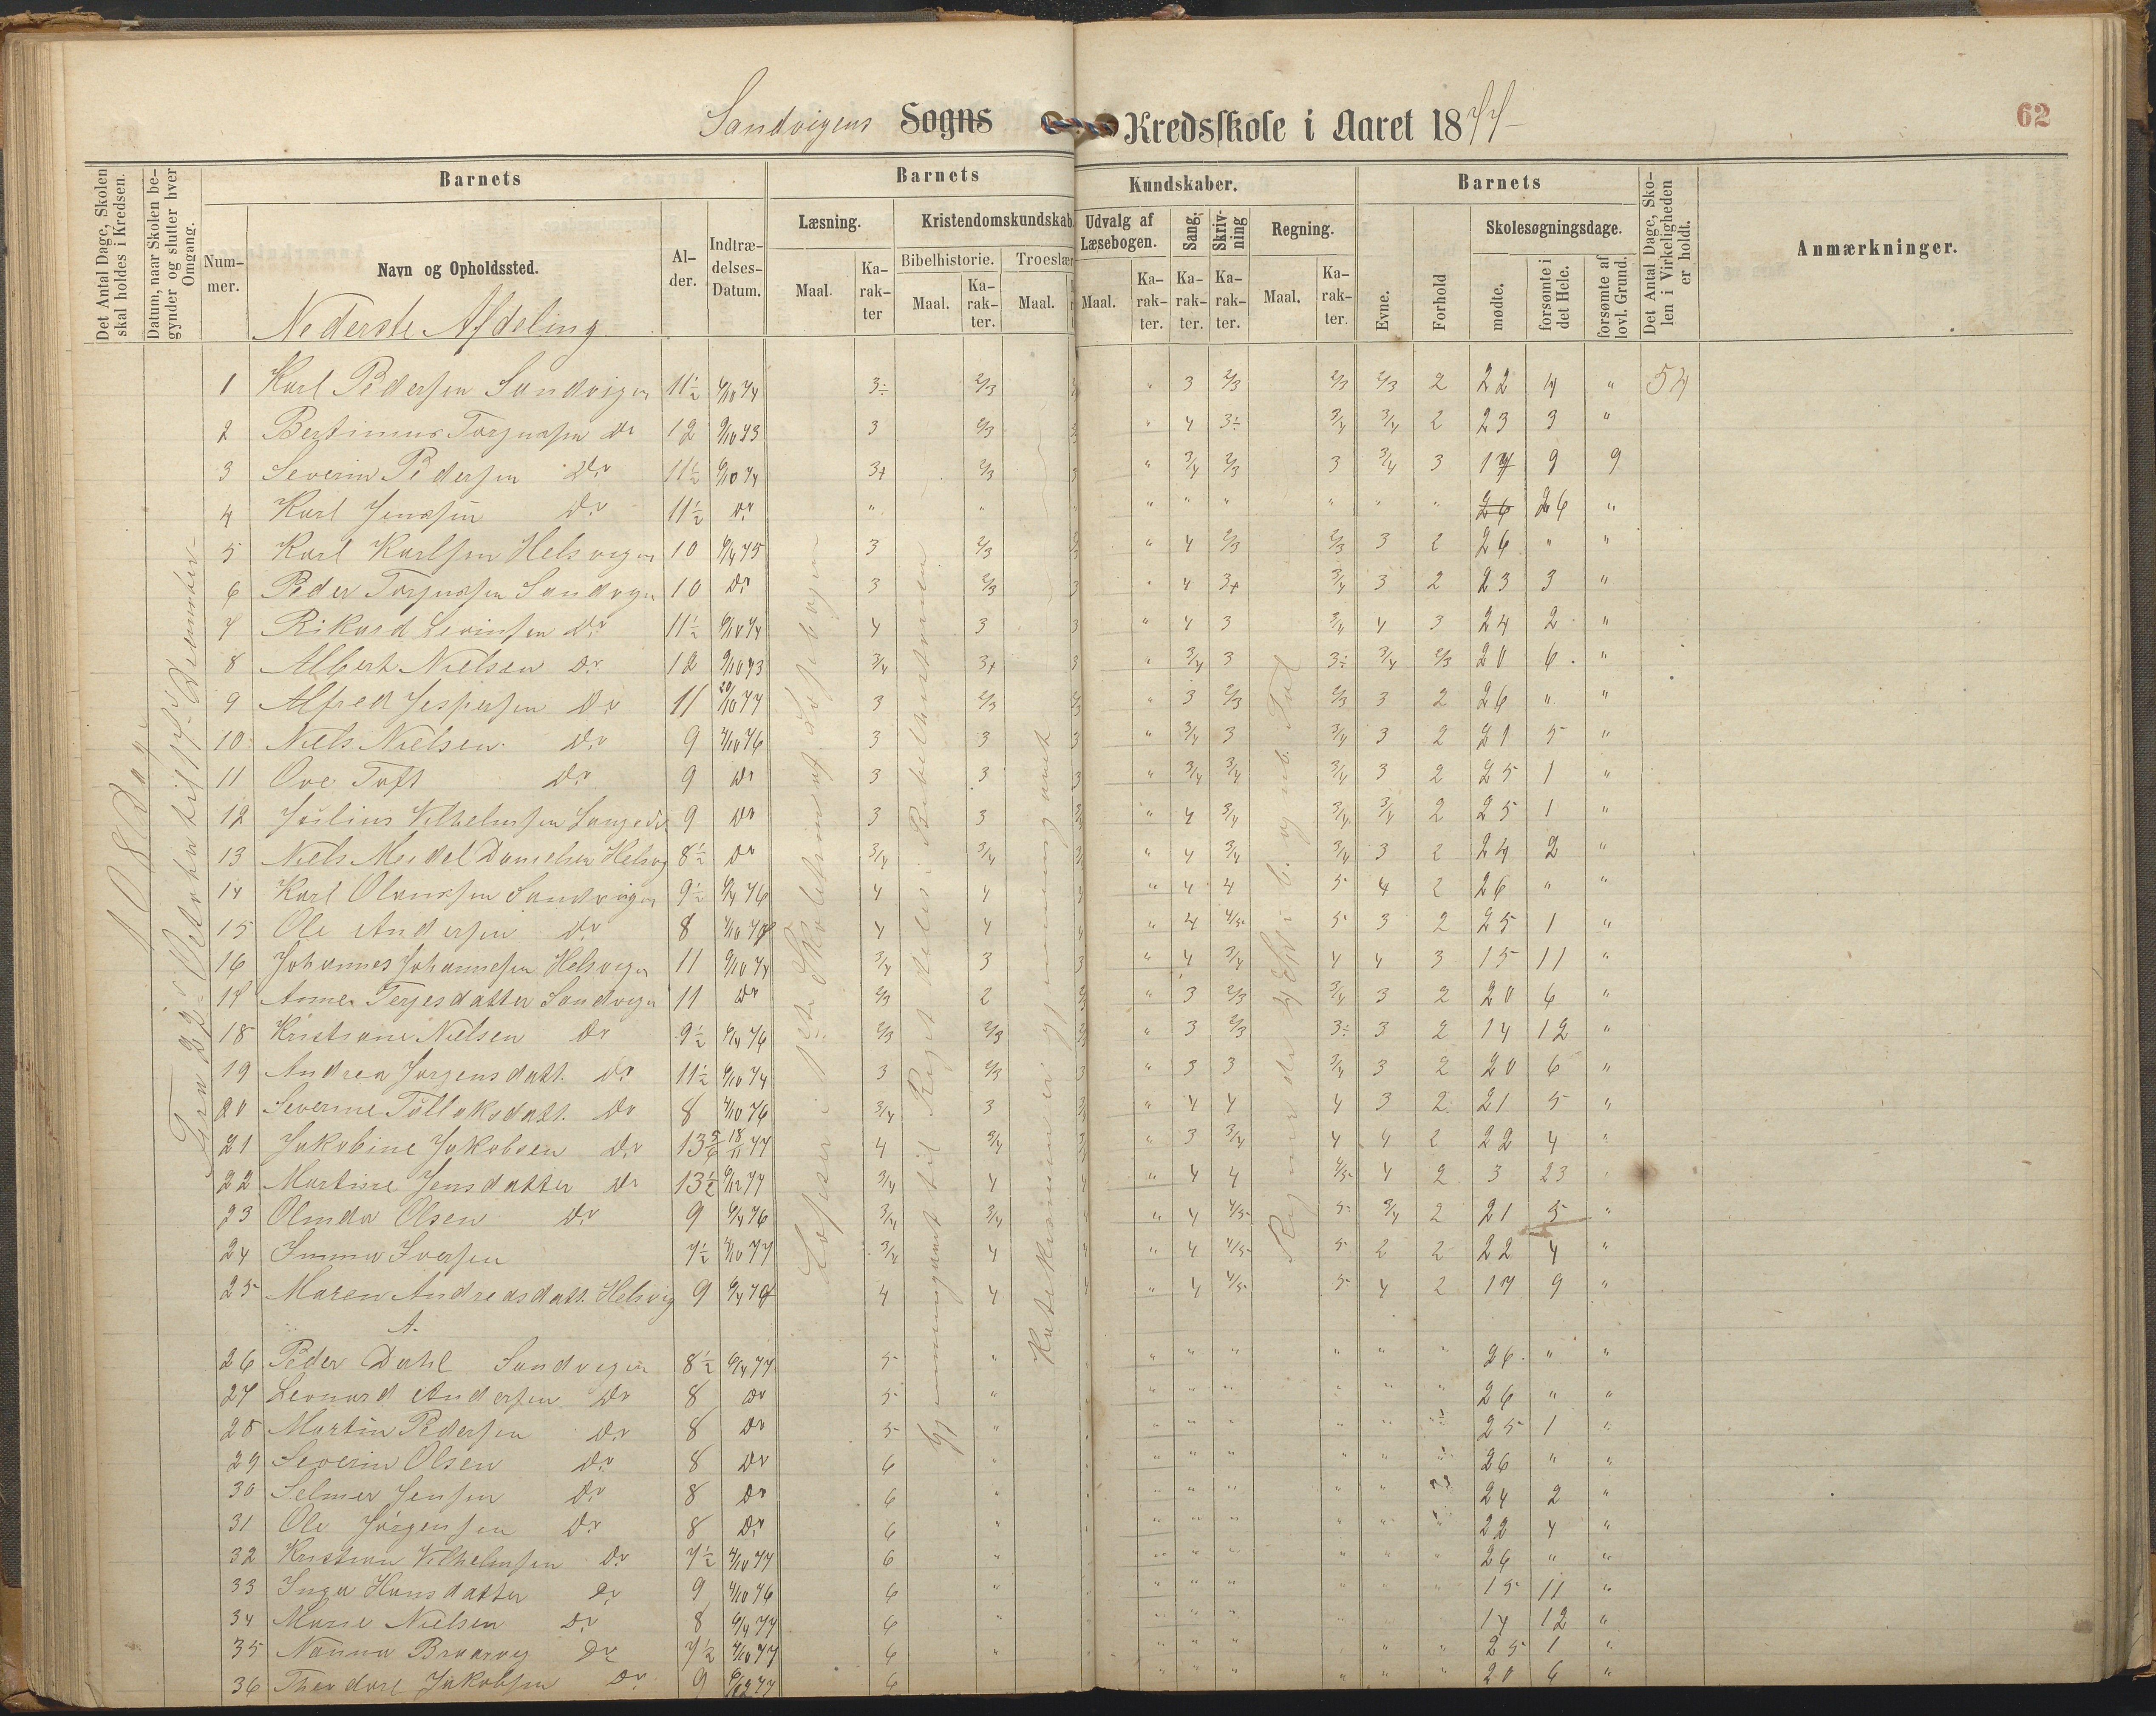 Sandvigens Sogns Kredsskole i Aaret 1877
62
Det Antal Dage, Skolen skal holdes i Kredsen.
Datum, naar Skolen begynder og slutter hver Omgang.
Barnets
Nummer.
Navn og Opholdssted.
Alder.
Indtrædelses-Datum.
Barnets
Kundskaber.
Læsning.
Maal.
Karakter
Kristendomskundskab.
Bibelhistorie.
Maal.
Karakter.
Troeslær
Maal.
Udvalg af Læsebogen.
Maal.
Karakter.
Sang.
Karakter.
Skrivning
Karakter.
Regning.
Maal.
Karakter.
Barnets
Evne.
Forhold
Skolesøgningsdage.
mødte.
forsømte i det Hele.
forsømte af lovl. Grund.
Det Antal Dage, Skolen i Virkeligheden er holdt.
Anmærkninger.
Nederste Afdeling
108 Dage
Fra 22de Oktober til 17de December
1 Karl Pedersen Sandvigen 11½ 6/10 74 3÷ 2/3 " 3 2/3 2/3 2/3 2 22 4 " 54
2 Bertinius Torjussen Do 12 9/10 73 3 2/3 " 4 3÷ 3/4 3/4 2 23 3 "
3 Severin Pedersen Do 11½ 6/10 74 3+ 2/3 3 " 3/4 2/3 3 3/4 3 17 9 9
4 Karl Jenssen Do 11½ Do " " " " " " " " 26 26 "
5 Karl Karlsen Helsvigen 10 6/4 75 3 2/3 " 4 2/3 2/3 3 2 26 " "
6 Peder Torjussen Sandvigen 10 Do 3 2/3 3 " 4 3+ 3/4 3 2 23 3 "
7 Rikard Levinsen Do 11½ 6/10 74 4 3 3 " 4 3 3/4 4 3 24 2 "
8 Albert Nielsen Do 12 9/10 73 3/4 3+ 3 " 3/4 3 3÷ 3/4 2/3 20 6 "
9 Alfred Jespersen Do 11 20/10 77 3 2/3 2/3 " 3 2/3 2/3 3 2 26 " "
10 Niels Nielsen Do 9 4/10 76 3 3 3 " 3/4 3 3/4 3 2 21 5 "
11 Ove Toft Do 9 Do 3 3 3 " 3/4 3/4 3/4 3 2 25 1 "
12 Julius Vilhelmsen 9 Do 3 3 " 4 3/4 3/4 3/4 2 25 1 "
13 Niels Meidel Danielsen Helsvig 8½ Do 3/4 3/4 " 4 3/4 3/4 3 2 24 2 "
14 Karl Olaussen Sandvigen 9½ 6/4 76 4 4 " 4 4 5 4 2 26 " "
15 Ole Andersen Do 8 4 4 4 " 4 4/5 5 3 2 25 1 "
16 Johannes Johannesen Helsvigen 11 6/10 74 3/4 3 3 " 4 3/4 4 4 3 15 11 "
17 Anne Terjesdatter Sandvigen 11 Do 2/3 2 2/3 " 3 2/3 3/4 3 2 20 6 "
18 Kristiane Nielsen Do 9½ 6/4 76 2/3 2/3 2/3 " 3 2/3 3÷ 3 2 14 12 "
19 Andrea Jørgensdatt. Do 11½ 6/10 74 3 2/3 3 " 3 3 3/4 3 2 20 6 "
20 Severine Tallaksdatt. Do 8 4/10 76 3/4 3 " 4 4 4 3 2 21 5 "
21 Jakobine Jakobsen Do 13 5/6 18/11 77 4 3/4 " 3 3/4 4 4 2 22 4 "
22 Martine Jensdatter Do 13½ 6/12 77 3/4 4 4 " 4 4 4/5 4 2 3 23 "
23 Olinda Olsen Do 9 6/4 76 3/4 3/4 " 4 4/5 5 3/4 2 21 5 "
24 Emma Iversen 7½ 4/10 77 3/4 4 4 " 4 4/5 5 2 2 22 4 "
25 Maren Andreasdatt. Helsvig 9 4 4 4 " 4 4/5 5 4 2 17 9 "
A.
26 Peder Dahl Sandvigen 8½ 6/4 77 5 " " " " " " " 26 " "
27 Leonard Andersen Do 8 Do 5 " " " " " " " 26 " "
28 Martin Pedersen Do 8 Do 5 " " " " " " " 25 1 "
29 Severin Olsen Do 8 Do 6 " " " " " " " 26 " "
30 Selmer Jensen Do 8 Do 6 " " " " " " " 24 2 "
31 Ole Jørgensen Do 8 Do 6 " " " " " " " 22 4 "
32 Kristian Vilhelmsen Do 7½ 4/10 77 6 " " " " " " " 26 " "
33 Inga Hansdatter Do 9 4/10 76 6 " " " " " " " 15 11 "
34 Marie Nielsen Do 8 6/4 77 6 " " " " " " " 14 12 "
35 Nanna Do 7½ 4/10 77 6 " " " " " " 25 1 "
36 Theodore Jakobsen Do 9 6/12 77 6 " " " " " " 20 6 "